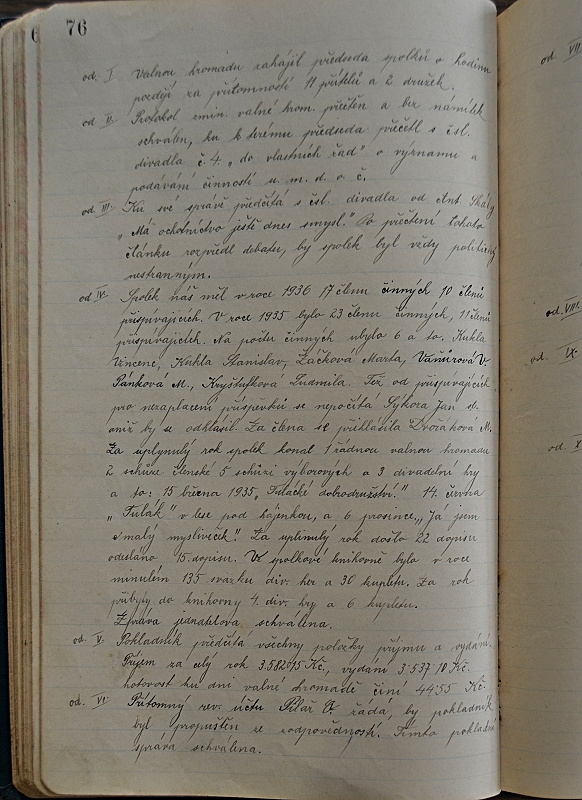 76
od. I Valnou hromadu zahájil předseda spolku o hodinu
později za přítomnosti 11 přátelů a 2 družek.
od II. Protokol min. valné hrom. přečten a bez námitek
schválen, ku kterému předseda přečetl s čsl.
divadla č. 4 „do vlastních řad" o významu a
podávání činností u. m. d. o. č.
od. III. Ku své správě předčítá s čsl. divadla od Ant. Skály
„Má ochotnictvo ještě dnes smysl." Po přečtení tohoto
článku rozpředl debatu, by spolek byl vždy politicky
nestranným.
od IV. Spolek náš měl v roce 1936 17 členu činných 10 členů
přispívajících. V roce 1935 bylo 23 členu činných, 11 členů
přispívajících. Na počtu činných ubylo 6 a to. Kukla
Vincenc, Kukla Stanislav, Žáčková Marta, Vaňurová V.
Pánková M., Kryštufková Ludmila. Též od přispívajících
pro nezaplacení příspěvků se nepočítá Sýkora Jan st.
aniž by se odhlásil. Za člena se přihlásila Dvořáková M.
Za uplynulý rok spolek konal 1 řádnou valnou hromadu
2 schůze členské 5 schůzí výborových a 3 divadelní hry
a to: 15 března 1935 „Tulácké dobrodružství." 14. června
„Tulák" v lese pod hájenkou, a 6 prosince „Já jsem
malý mysliveček! Za uplinulý rok došlo 22 dopisu
odesláno 15 dopisu. Ve spolkové knihovně bylo v roce
minulém 135 svazku div. her a 30 kupletu. Za rok
přibyly do knihovny 4. div. hry a 6 kupletu.
Zpráva jednatelova schválena.
od. V. Pokladník předčítá všechny položky příjmu a vydání.
Příjem za celý rok 3.582.15 Kč, vydání 3.537.10 Kč.
hotovost ku dni valné hromadě činí 44.55 Kč.
od. VI. Přítomný rev. účtu Pilař V. řádá, by pokladník
byl propuštěn ze zodpovědnosti. Tímto pokladní
správa schválena.
od VII.
od. VIII.
od. IX.
od. X